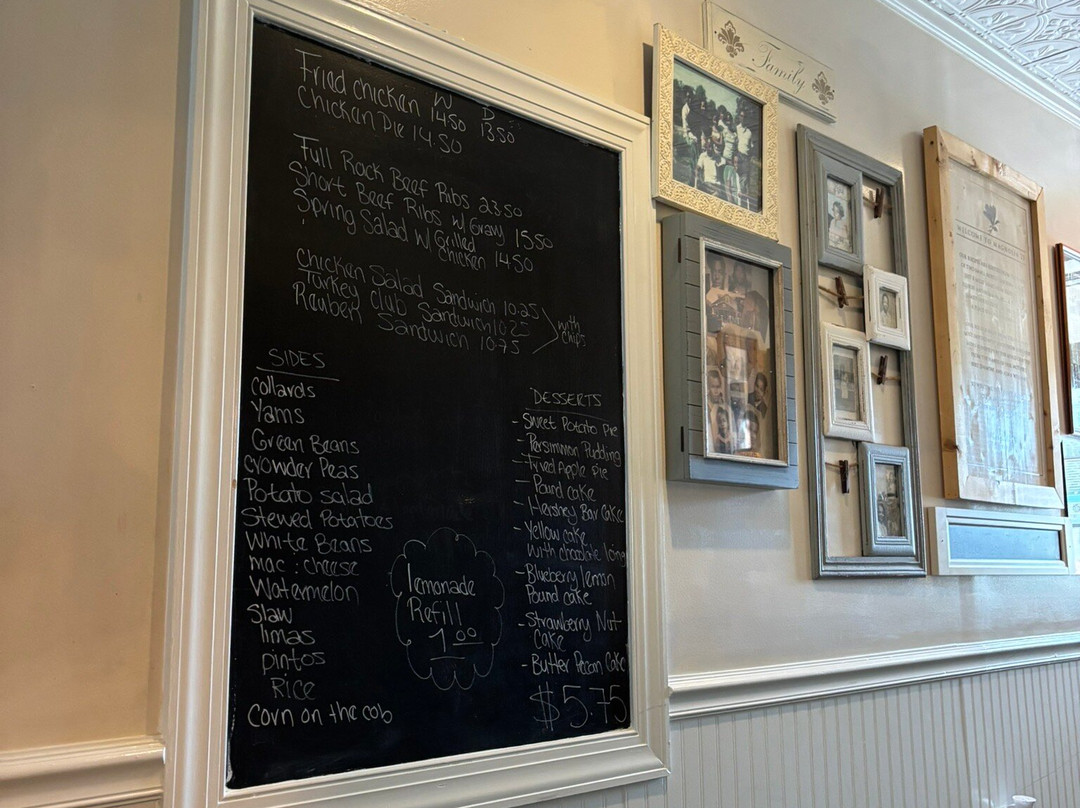 Fried chicken W 1450 D 1350
Chicken Pie 14.50
Full Rack Beef Ribs 2350
Short Beef Ribs w/ Gravy 1550
Spring Salad w/ Grilled
Chicken 1450
Chicken Salad Sandwich 10.25
Turkey Club Sandwich 10.25
Rauben Sandwich 10.75
with
chips
SIDES
Collards
Yams
Green Beans
Crowder Peas
Potato salad
Stewed Potatoes
White Beans
mac : cheese
Watermelon
Slaw
limas
pintos
Rice
Corn on the cob
lemonade
Refill
1.00
DESSERTS
- Sweet Potato Pie
- Persimmon Pudding
- Fried Apple Pie
- Pound cake
- Hershey Bar Cake
- Yellow cake
with chocolate Icing
- Blueberry lemon
Pound cake
- Strawberry Nut
Cake
- Butter Pecan Cake
$5.75
Family
WELCOME TO